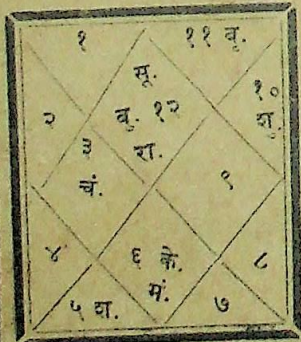 १ ११ बृ.
सू.
२ बु. १२ १०
शु.
३ रा.
चं. ९
४ ६ के. ८
मं.
५ श. ७